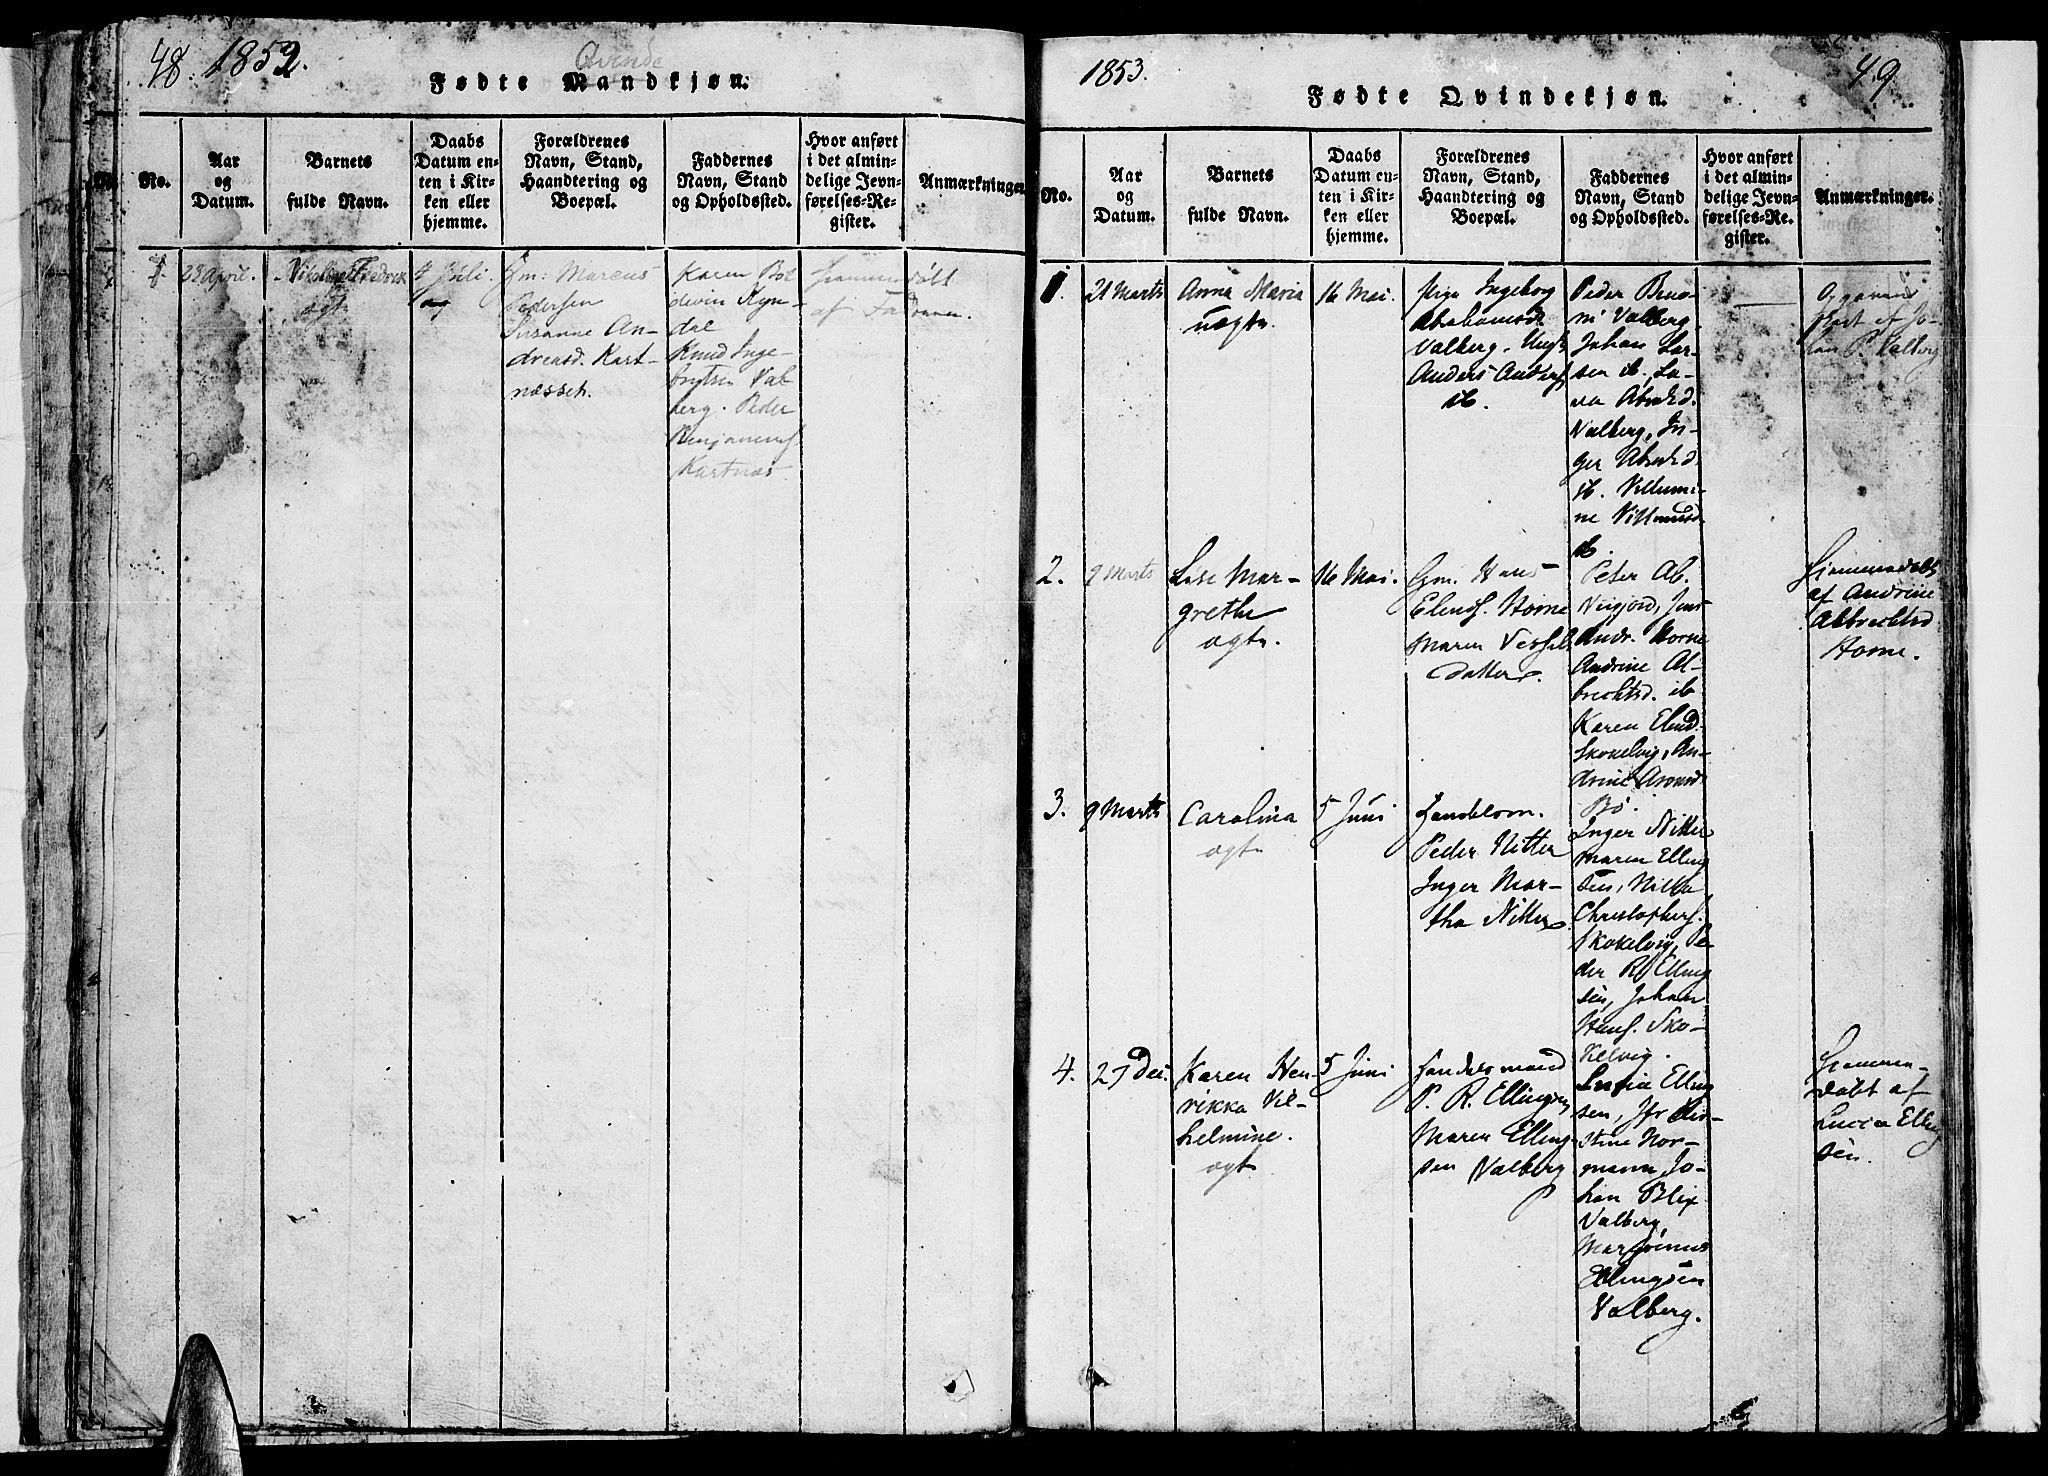 48. 1852.
Qvinde
Fødte Mandkjøn.
No.
Aar
og
Datum.
Barnets
fulde Navn.
Daabs
Datum en-
ten i Kir-
ken eller
hjemme.
Forældrenes
Navn, Stand,
Haandtering og
Boepæl.
Faddernes
Navn, Stand
og Opholdssted.
Hvor anført
i det almin-
delige Jevn-
førelses-Re-
gister.
Anmærkninger
1
23 April.
Fredrik
ægte
4 Juli.
Gm: Marcus
Pedersen
Susanne An-
dreasd. Kart-
næsset.
Karen Bol
devin Myn-
dal
Knud Inge-
brigtsen Val-
berg. Peder
Benjamins.
Kartnæs
Hjemmedøbt
af Faderen.
1853.
49
Fødte Qvindekjøn.
No.
Aar
og
Datum.
Barnets
fulde Navn.
Daabs
Datum en-
ten i Kir-
ken eller
hjemme.
Forældrenes
Navn, Stand,
Haandtering og
Boepæl.
Faddernes
Navn, Stand
og Opholdssted.
Hvor anført
i det almin-
delige Jevn-
førelses-Re-
gister.
Anmærkninger.
1.
21 Marts
Anna Maria
uægte.
16 Mai.
Pige Ingeborg
Abrahamsd.
Valberg. Ungk.
Anders Anders.
ib.
Peder Bene-
Valberg,
Johan Lar-
sen ib. La-
va Abrahd.
Valberg, In-
ger Abrahd.
ib. Villumi-
ne Villumsd.
ib.
Opgivende
af Jo-
han P. Valberg
2.
9 Marts
Lise Mar-
grethe
ægte.
16 Mai.
Gm. Hans
Elends. Horne
Maren Vessel
datter.
Peter Ab.
Jens
Andr. Horne
Andrine Al-
brechtsd. ib
Karen Elend.
Skokelvig, An-
drine Aronsd
Bø.
Hjemmedøbt
af Andrine
Albrechtsd
Horne.
3.
9 Marts
Carolina
ægte
5 Juni
Handelsm.
Peder Nitter
Inger Mar-
tha Nitter.
Inger Nitter
Maren Elling
sen, Nilla
Christophers.
Skokelvig, Pe
der R. Elling
sen, Johan
Hans. Sko-
kelvig.
4.
27 Dec.
Karen Hen-
rikka Vil-
helmine.
ægte
5 Juni
Handelsmand
P. R. Ellingsen
Maren Elling-
sen Valberg
Lucia Elling
sen, Jfr Chri-
stine Nor-
mann, Jo-
han Blix
Valberg,
Ellingsen
Valberg.
Hjemme-
døbt af
Lucia Elling
sen.